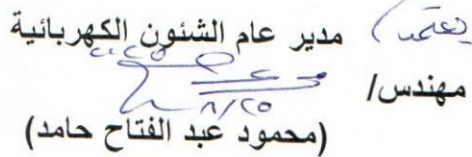 يعتمد مدير عام الشئون الكهربائية
مهندس/
٨/٢٥
(محمود عبد الفتاح حامد)